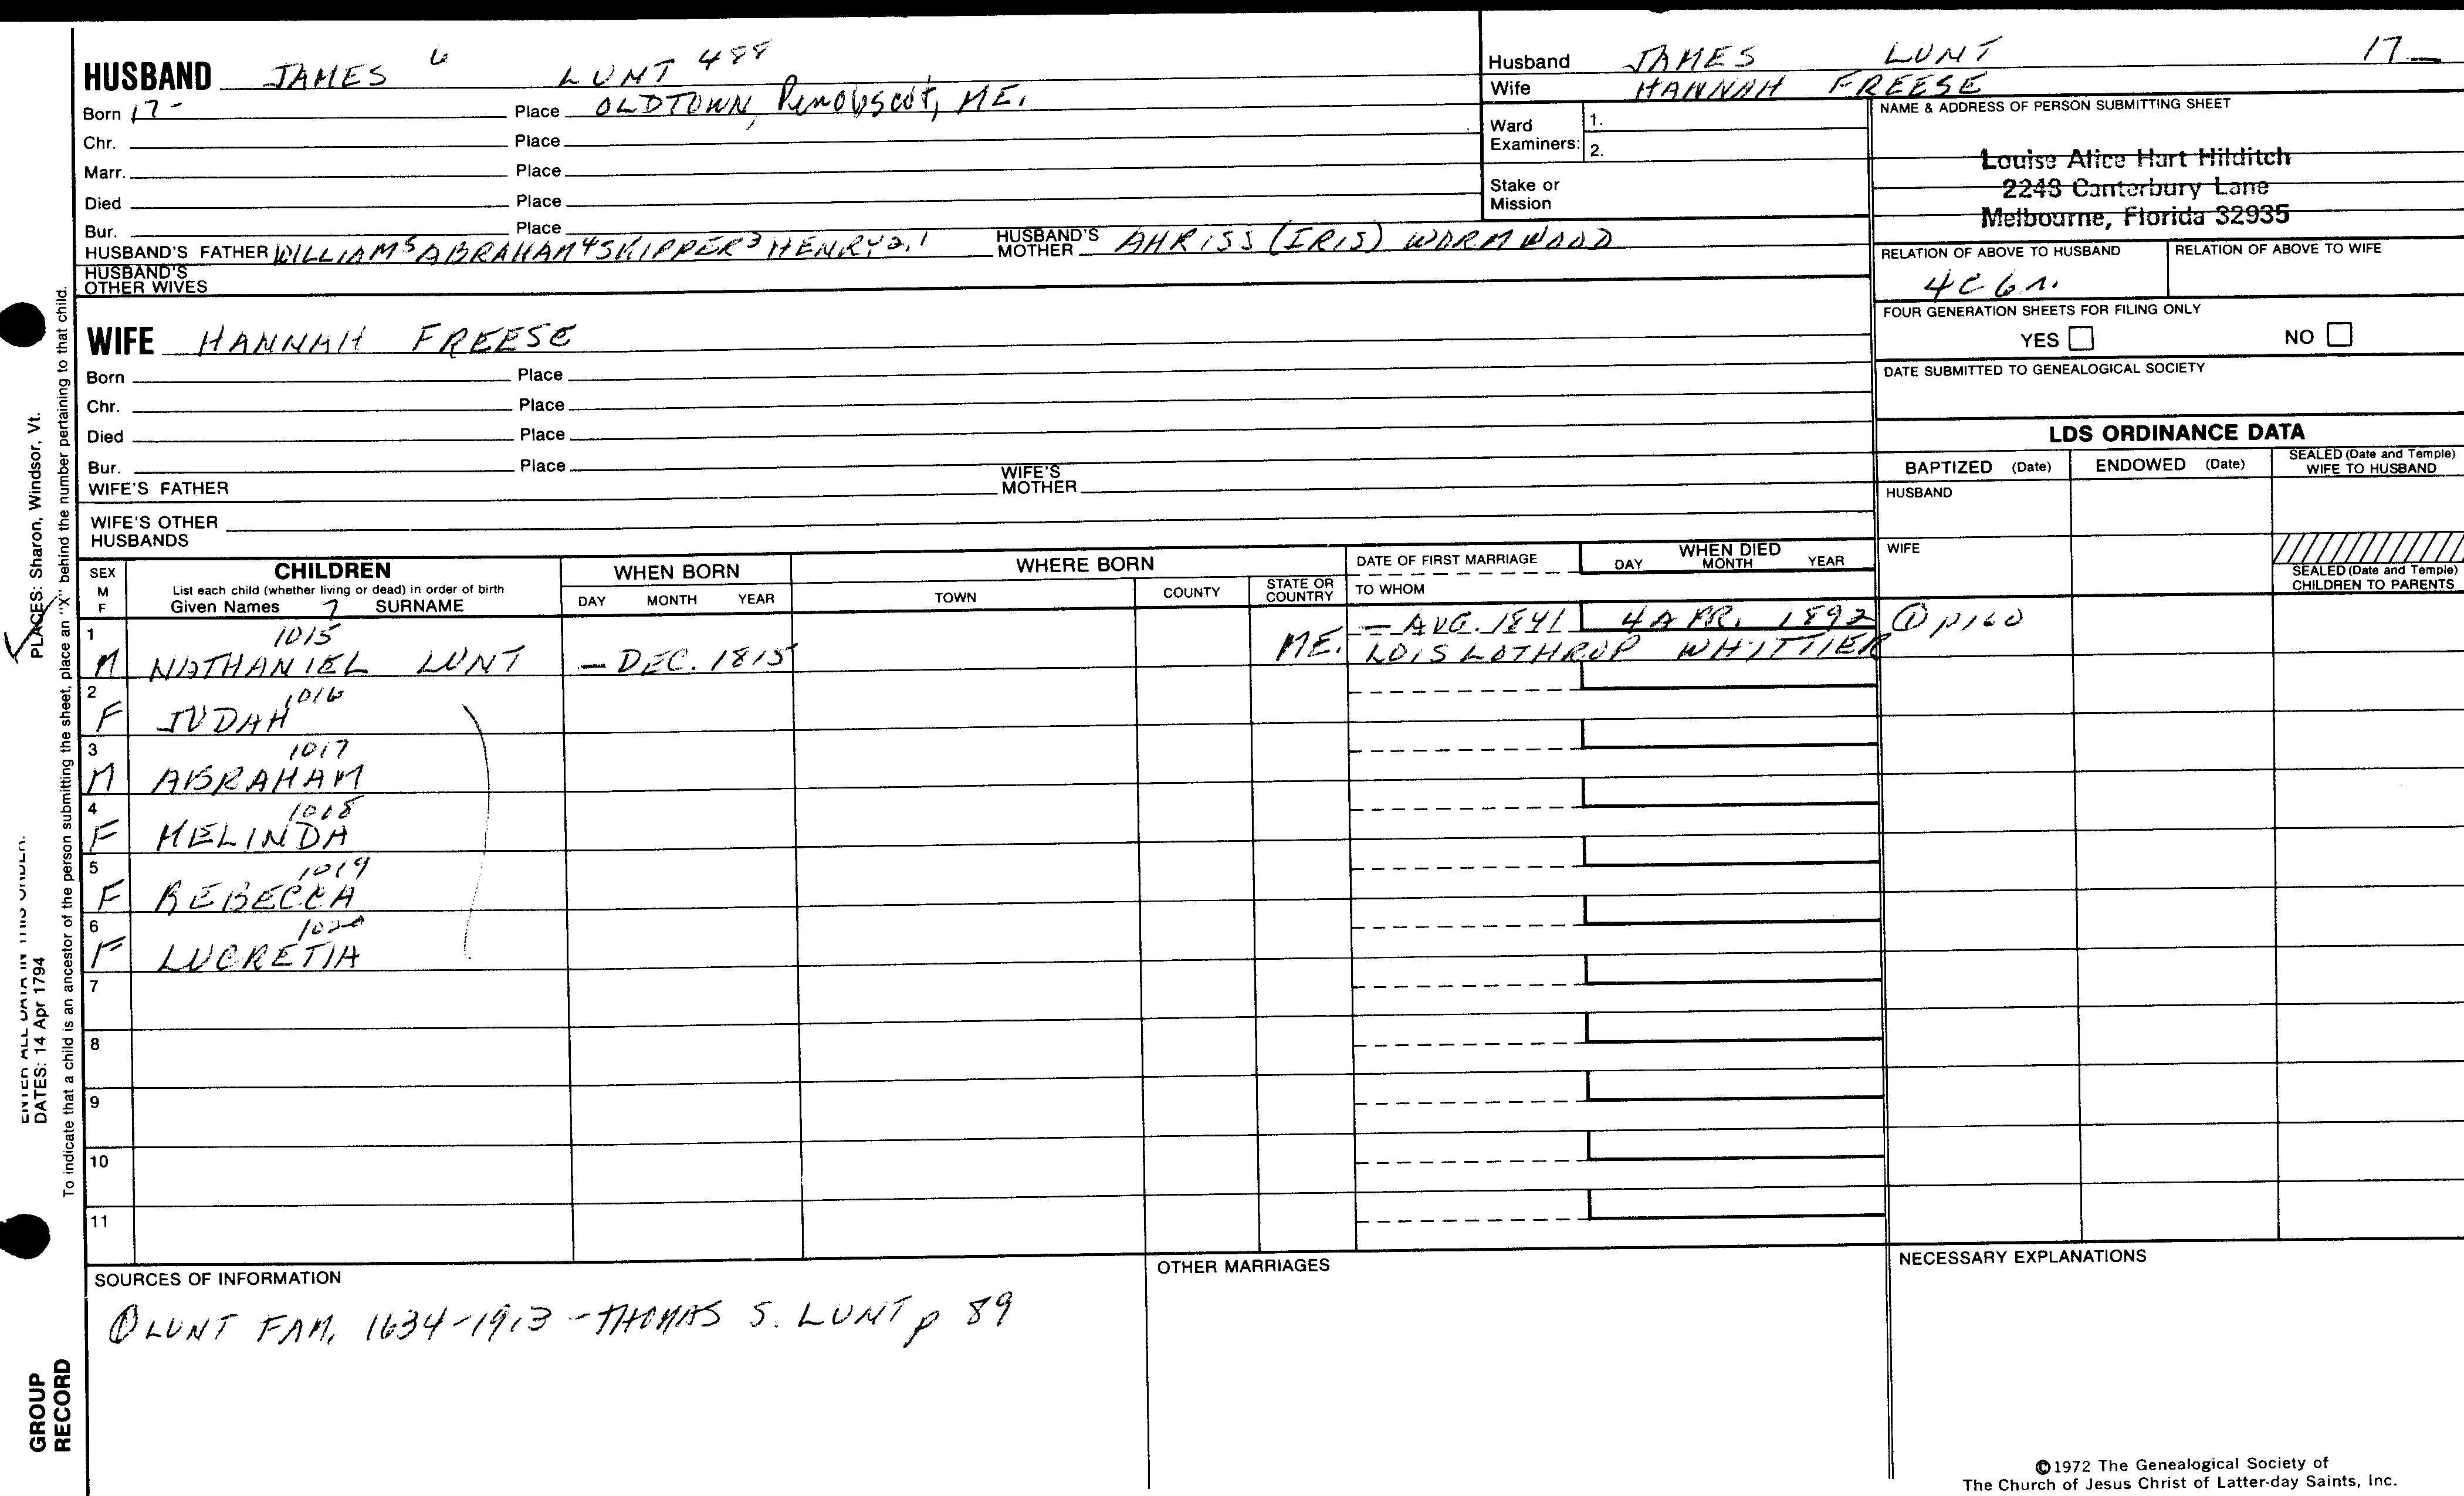 HUSBAND JAMES 6 LUNT 488
Born 17- Place OLDTOWN, Penobscot, ME.
Chr. Place
Marr. Place
Died Place
Bur. Place
HUSBAND'S FATHER WILLIAM 5 ABRAHAM 4 SKIPPER 3 HENRY 2,1 HUSBAND'S MOTHER AHRISS (IRIS) WORMWOOD
HUSBAND'S OTHER WIVES
WIFE HANNAH FREESE
Born Place
Chr. Place
Died Place
Bur. Place
WIFE'S FATHER WIFE'S MOTHER
WIFE'S OTHER HUSBANDS
Husband JAMES LUNT 17-
Wife HANNAH FREESE
Ward Examiners: 1.
2.
Stake or Mission
NAME & ADDRESS OF PERSON SUBMITTING SHEET
Louise Alice Hart Hilditch
2243 Canterbury Lane
Melbourne, Florida 32935
RELATION OF ABOVE TO HUSBAND RELATION OF ABOVE TO WIFE
4C 6r.
FOUR GENERATION SHEETS FOR FILING ONLY
YES NO
DATE SUBMITTED TO GENEALOGICAL SOCIETY
LDS ORDINANCE DATA
BAPTIZED (Date) ENDOWED (Date) SEALED (Date and Temple) WIFE TO HUSBAND
HUSBAND
WIFE
SEALED (Date and Temple) CHILDREN TO PARENTS
SEX M F
CHILDREN
List each child (whether living or dead) in order of birth
Given Names 7 SURNAME
WHEN BORN
DAY MONTH YEAR
WHERE BORN
TOWN COUNTY STATE OR COUNTRY
DATE OF FIRST MARRIAGE
TO WHOM
WHEN DIED
DAY MONTH YEAR
1 1015 — AUG. 1841 4 APR. 1892 ① p160
M NATHANIEL LUNT — DEC. 1815 ME. LOIS LOTHROP WHITTIER
2 1016
F JUDAH
3 1017
M ABRAHAM
4 1018
F MELINDA
5 1019
F REBECCA
6 1020
F LUCRETIA
7
8
9
10
11
SOURCES OF INFORMATION
① LUNT FAM. 1634-1913 - THOMAS S. LUNT p 89
OTHER MARRIAGES
NECESSARY EXPLANATIONS
©1972 The Genealogical Society of
The Church of Jesus Christ of Latter-day Saints, Inc.
PLACES: Sharon, Windsor, Vt.
DATES: 14 Apr 1794
ENTER ALL DATA IN THIS ORDER:
To indicate that a child is an ancestor of the person submitting the sheet, place an "X" behind the number pertaining to that child.
GROUP
RECORD